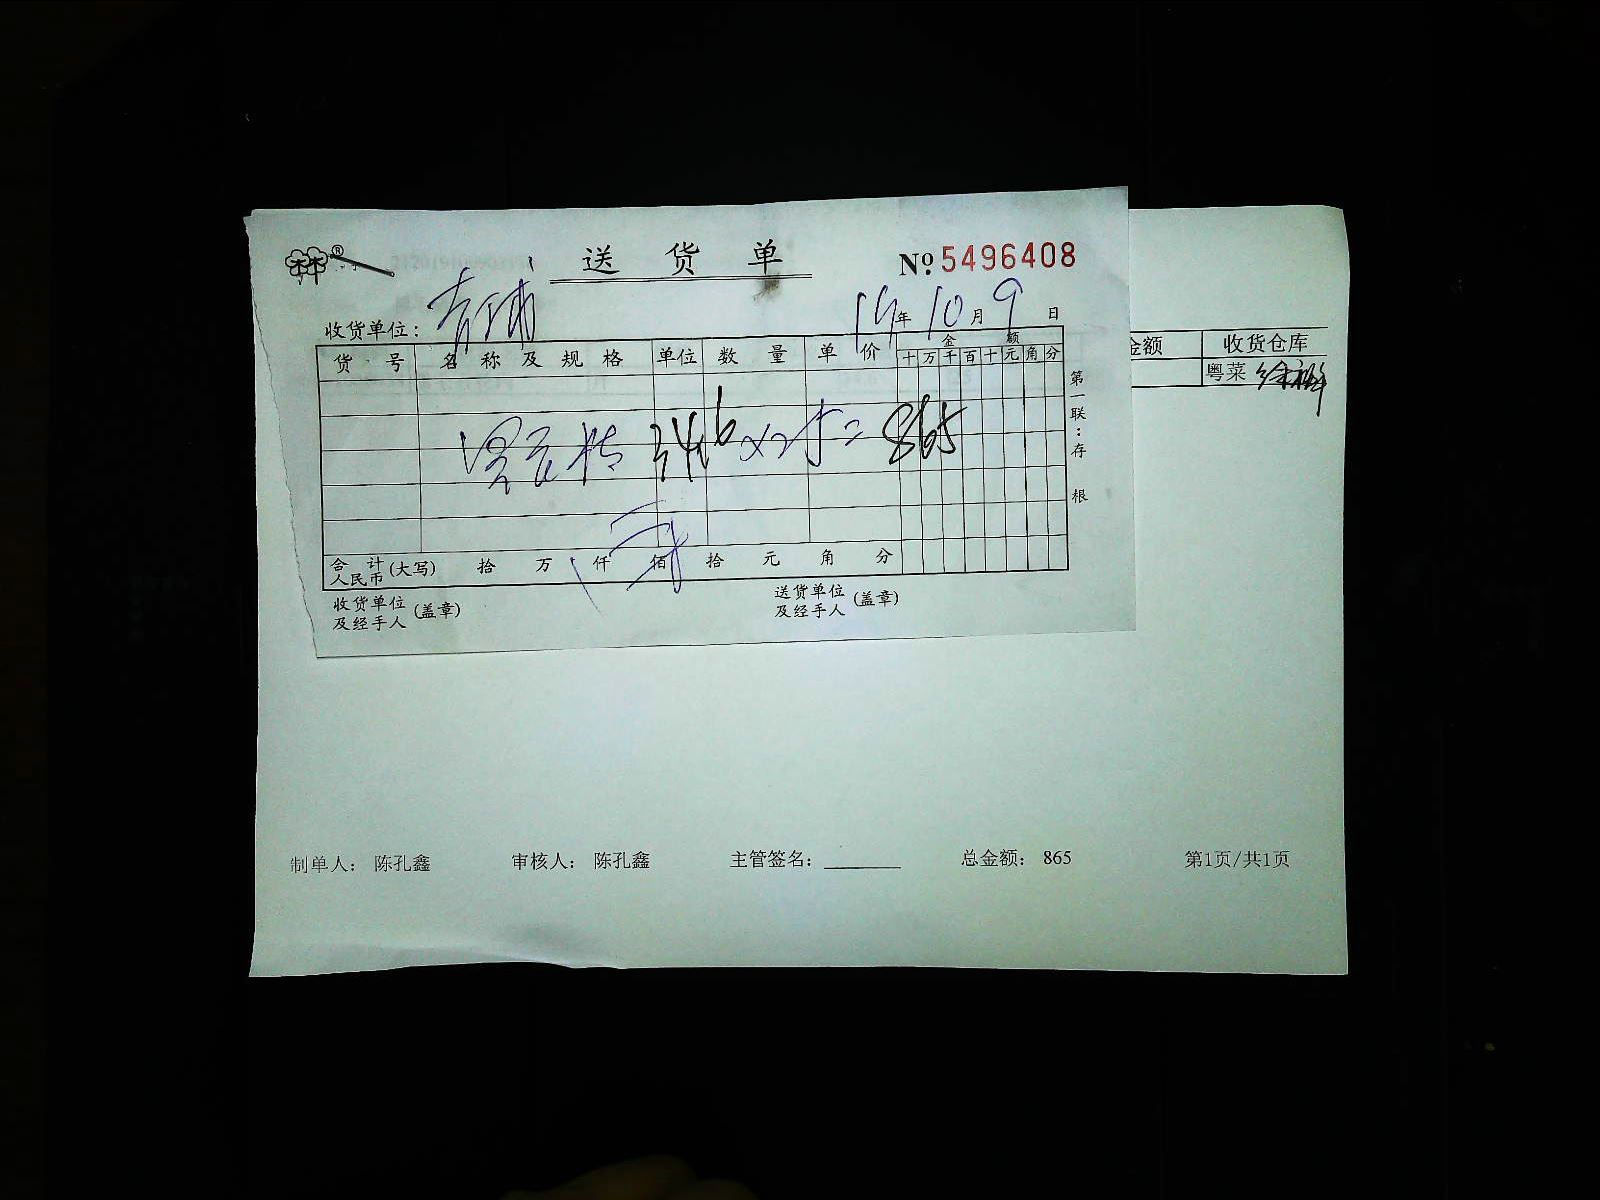 送 货 单 № 5496408
收货单位：
年 10 月 9 日
货 号 名 称 及 规 格 单位 数 量 单 价 金 额
十 万 千 百 十 元 角 分
34.6 × 25 = 865
合 计 人民币 (大写) 拾 万 仟 佰 拾 元 角 分
收货单位及经手人 (盖章) 送货单位及经手人 (盖章)
第一联：存根
金额 收货仓库
粤菜
制单人： 陈孔鑫 审核人： 陈孔鑫 主管签名： 总金额： 865 第1页/共1页